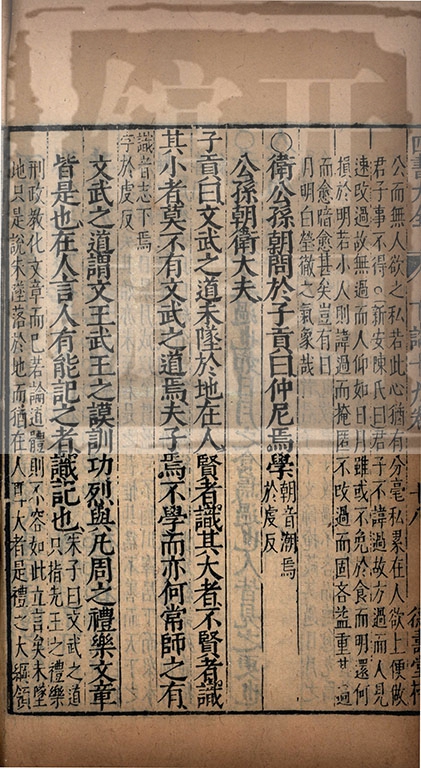 四書大全 下論十九卷 十八
公而無人欲之私若此心猶有分毫私累在人欲上便做
君子事不得○新安陳氏曰君子不諱過故方過而人見
速改過故無過而人仰如日月雖或不免於食而明還何
損於明若小人則諱過而掩匿不改過而固吝益重其過
而愈暗愈甚矣豈有日
月明白瑩徹之氣象哉
○衛公孫朝問於子貢曰仲尼焉學朝音潮焉
於虔反
公孫朝衛大夫
子貢曰文武之道未墜於地在人賢者識其大者不賢者識
其小者莫不有文武之道焉夫子焉不學而亦何常師之有
識音志下焉
字於虔反
文武之道謂文王武王之謨訓功烈與凡周之禮樂文章
皆是也在人言人有能記之者識記也朱子曰文武之道
只指先王之禮樂
刑政教化文章而已若論道體則不容如此立言矣未墜
地只是說未墜落於地而猶在人耳大者是禮之大綱領